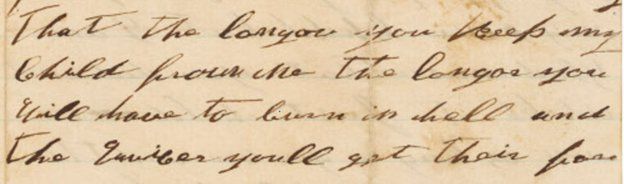 that the longor you keep my
Child from me the longor you
will have to burn in hell and
the qwicer youll get their for